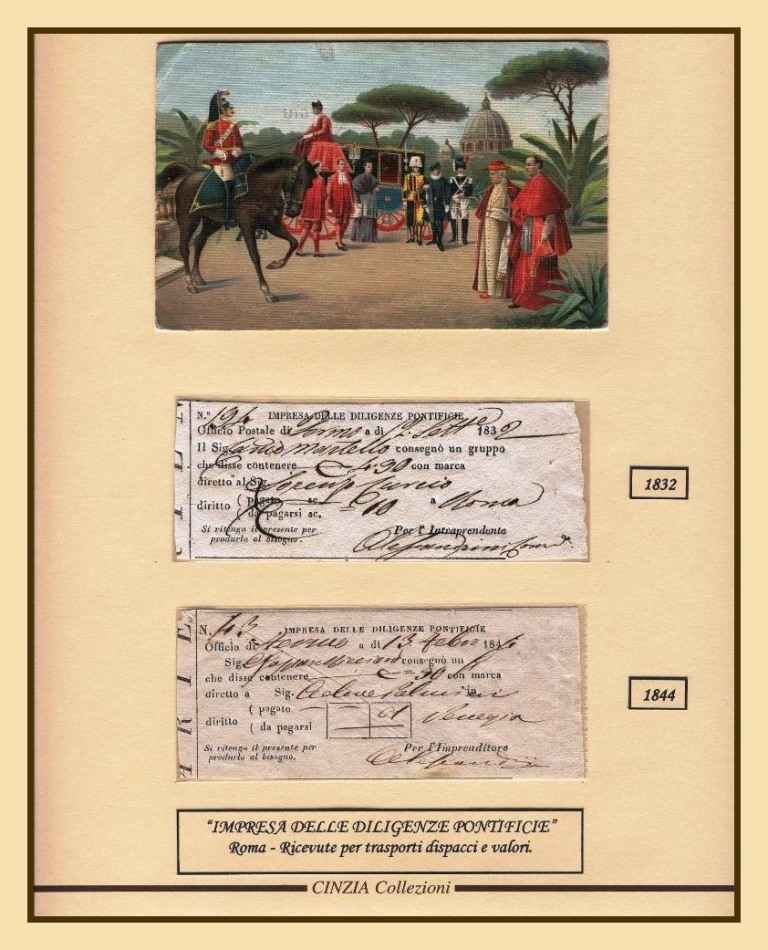 N.º 194 IMPRESA DELLE DILIGENZE PONTIFICIE
Officio Postale di Fermo a di 12 Sett.e 1832
Il Sig. martello consegnò un gruppo
che disse contenere 4.90 con marca
diretto al Sig. Lorenzo Curcio
diritto ( pagato sc. a Roma
( da pagarsi sc. 10
Si ritenga il presente per Per l'Intraprendente
produrlo al bisogno.
1832
N. 43 IMPRESA DELLE DILIGENZE PONTIFICIE
Officio di a di 13 Febro 1844
Sig. consegnò un
che disse contenere 50 con marca
diretto a Sig. in
diritto ( pagato Venezia
( da pagarsi
Si ritenga il presente per Per l'Imprenditore
produrlo al bisogno.
ARIE
1844
"IMPRESA DELLE DILIGENZE PONTIFICIE"
Roma - Ricevute per trasporti dispacci e valori.
CINZIA Collezioni